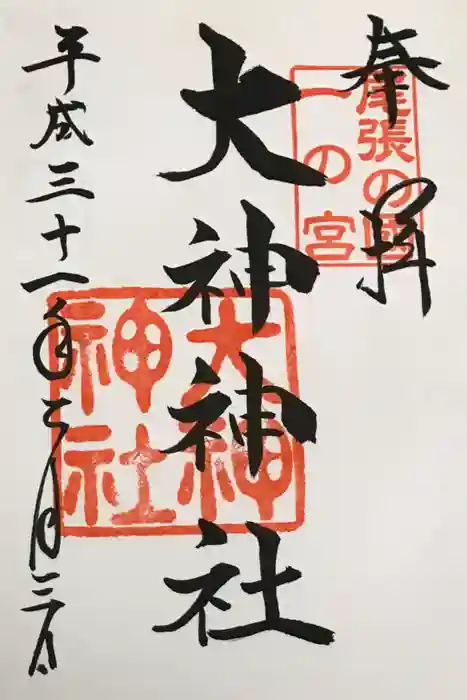 奉拝
尾張の國
一の宮
大神神社
大神
神社
平成三十一年三月三日